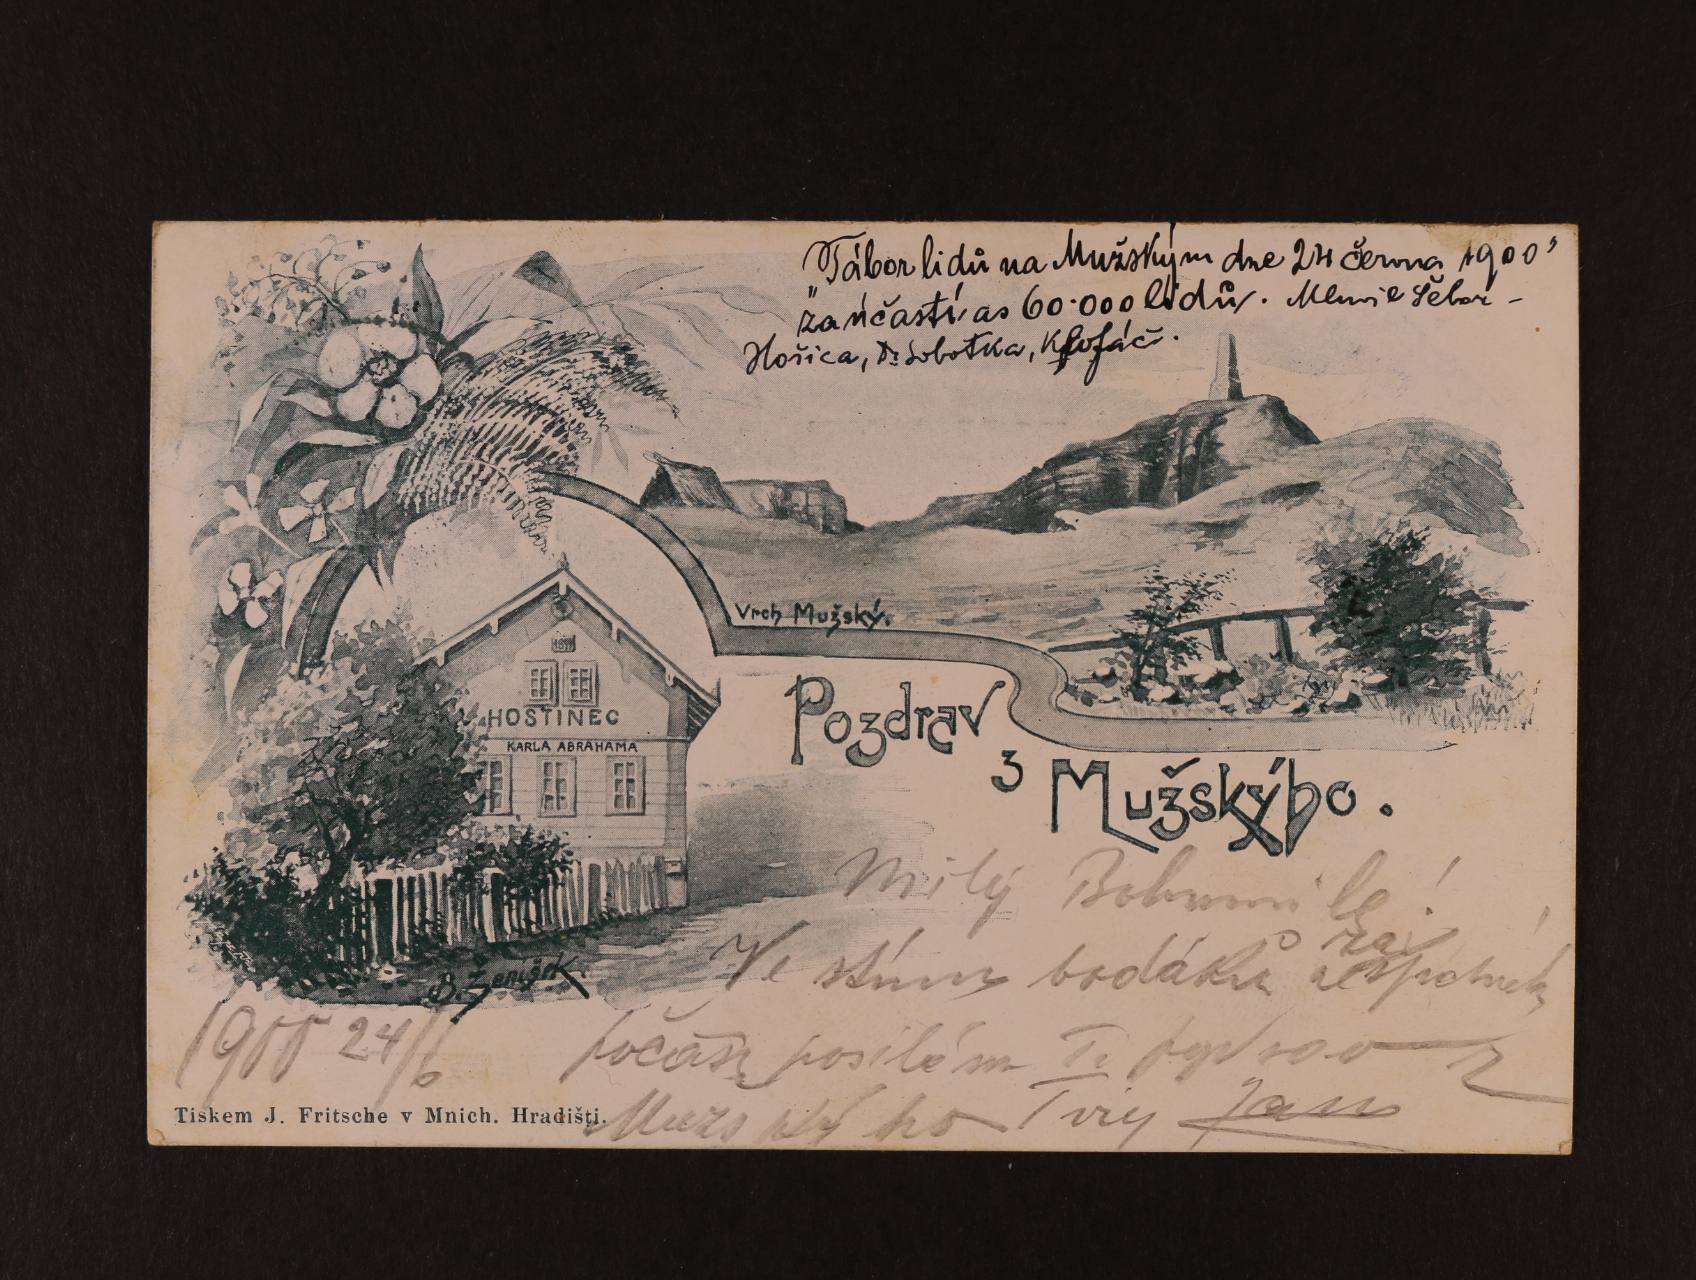 "Tábor lidů na Mužským dne 24 června 1900"
za účasti as 60.000 lidů. Mluvil Šebor -
Hořica, Dr Sobotka, Klofáč.
Vrch Mužský.
1817
HOSTINEC
KARLA ABRAHAMA
Pozdrav
z
Mužskýho.
B. Ženíšek.
Milý Bohumile!
Ve stínu bodáků za
počasí posílám Ti pozdrav z
1900 24/6
Mužskýho Tvůj Jan
Tiskem J. Fritsche v Mnich. Hradišti.